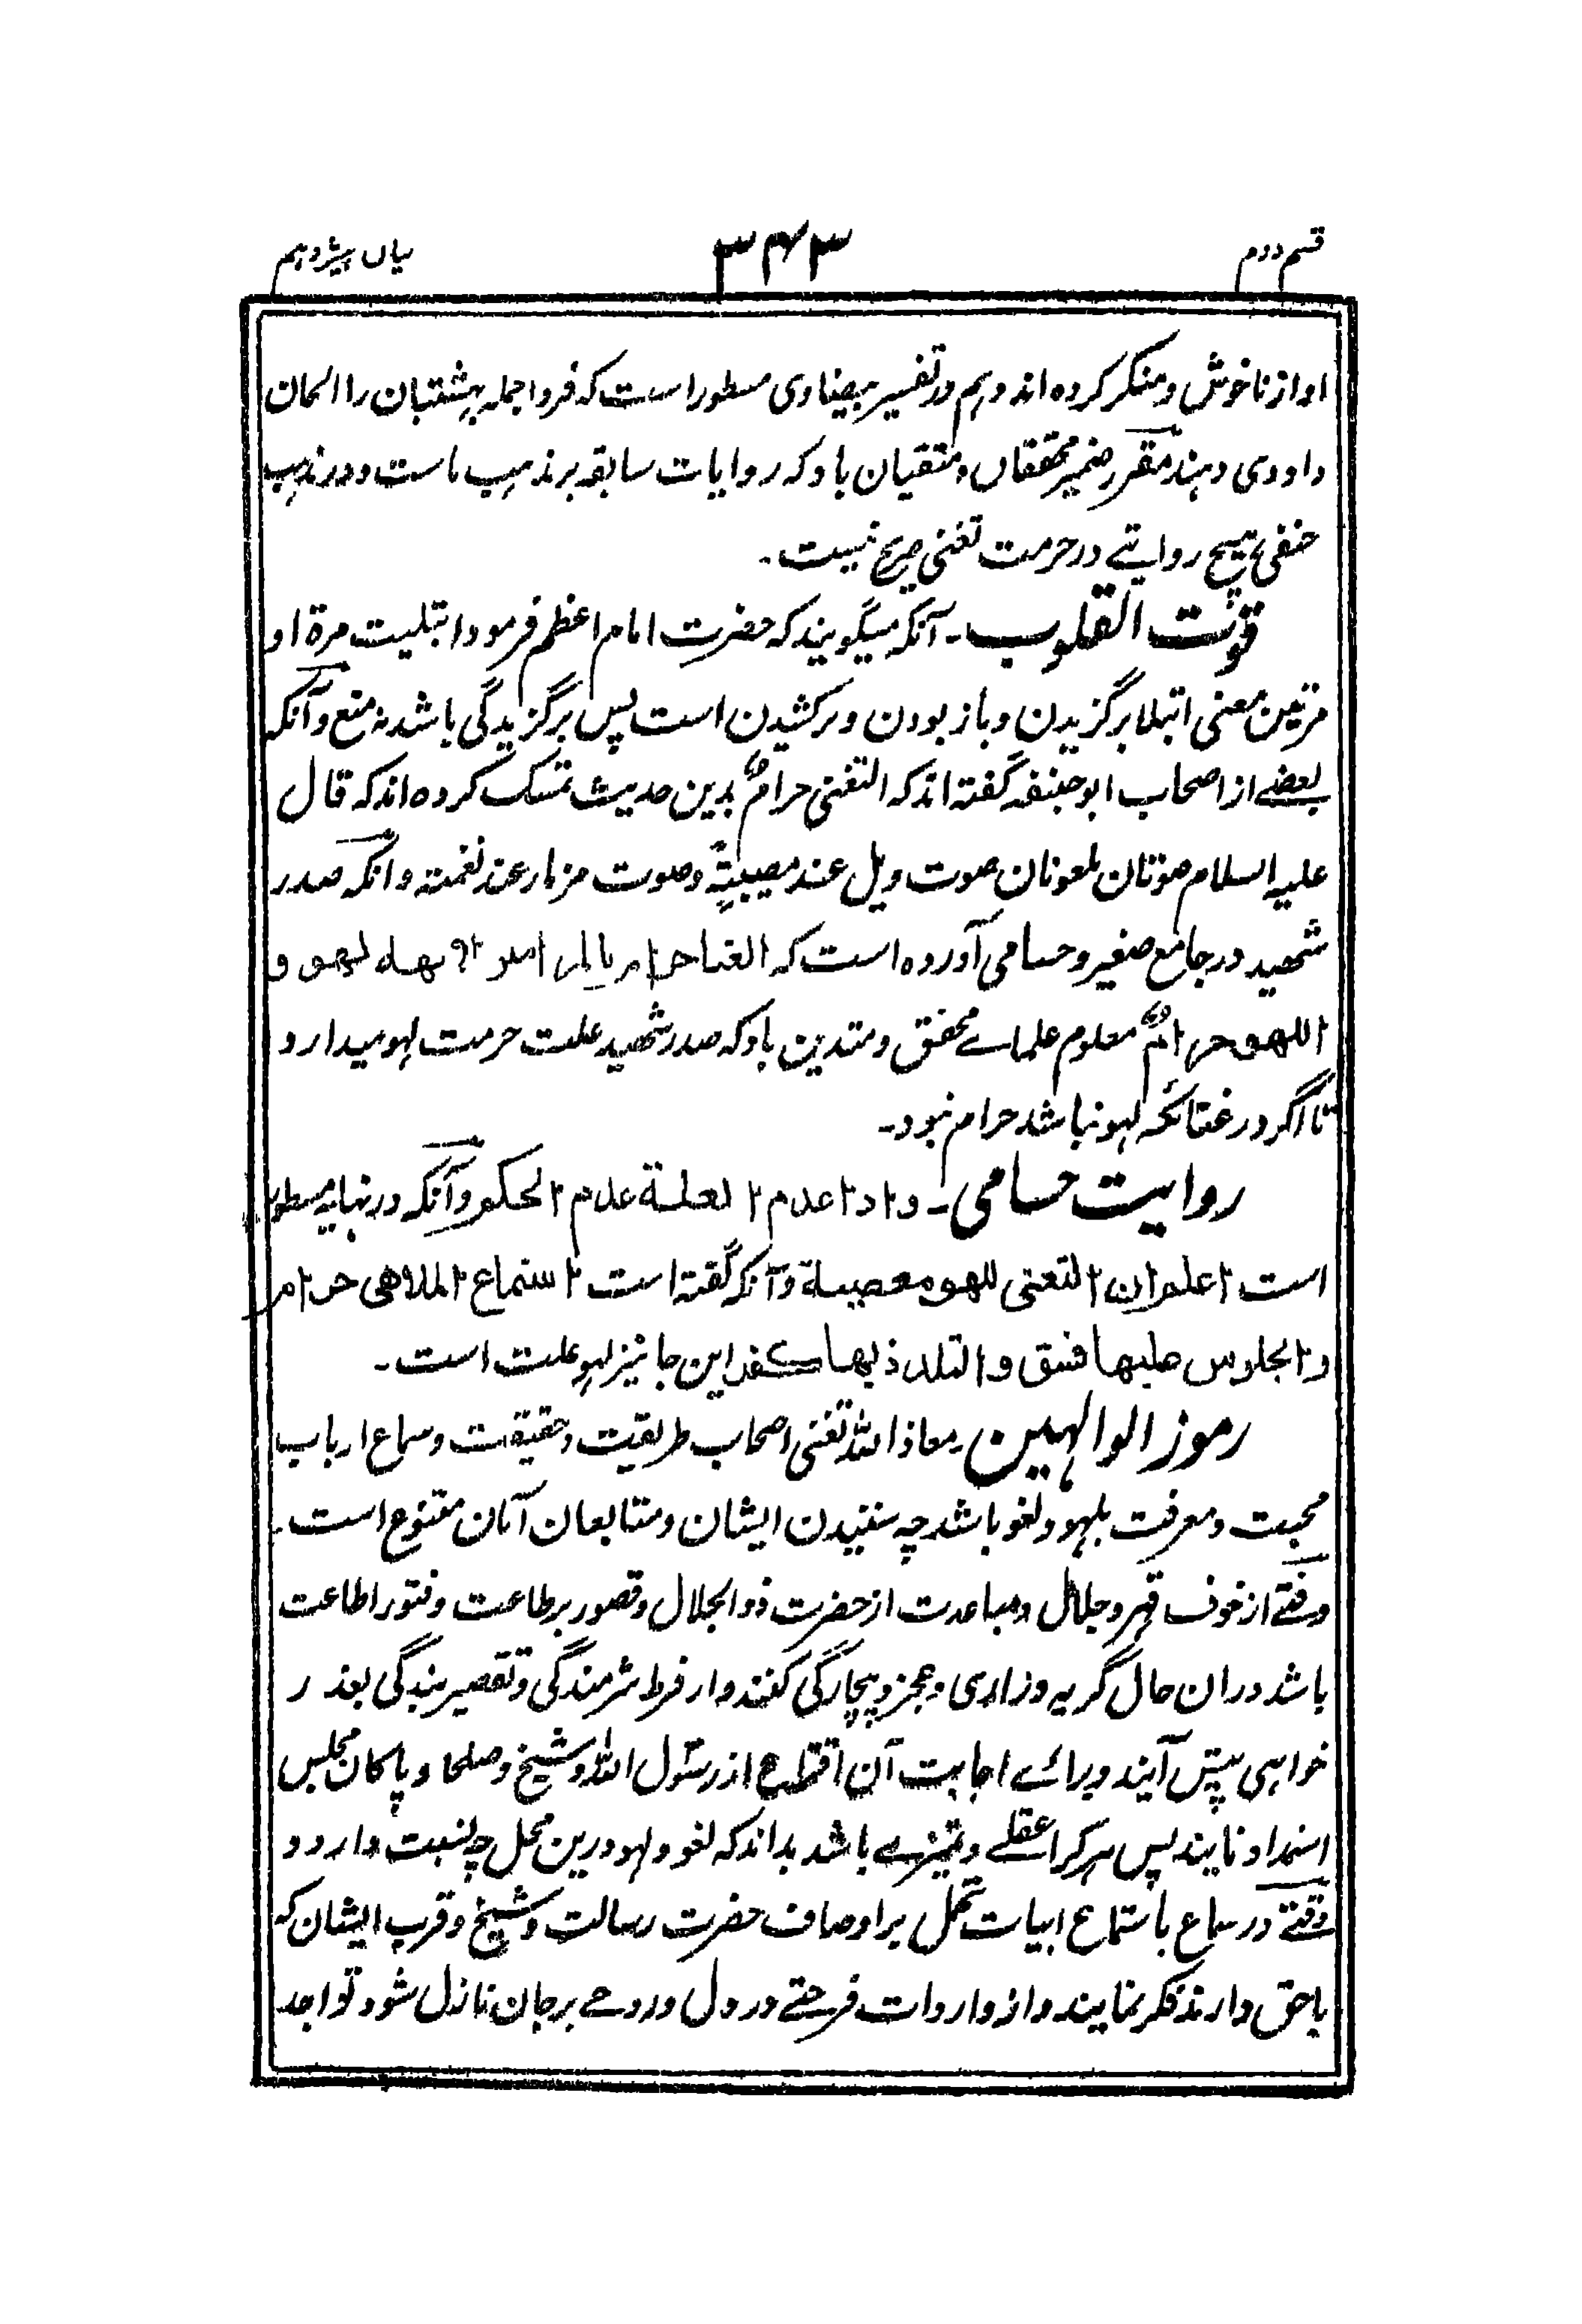 قسم دوم
۳۴۳
بیاں ہیژدہم
اواز ناخوش و منکر کردہ اند وہم در تفسیر بیضاوی مسطور است کہ فردا جملہ بہشتیان را الحان
داودی دہند مقرر ضمیر محققاں و متقیان باد کہ روایات سابقہ بر مذہب ماست و در مذہب
حنفی ہیچ روایتے در حرمت تغنی صریح نیست۔
قوت القلوب۔ آنکہ میگویند کہ حضرت امام اعظم فرمود ابتلیت مرۃ او
مرتین معنی ابتلا برگزیدن و باز بودن و برکشیدن است پس برگزیدگی باشد نہ منع و آنکہ
بعضے از اصحاب ابو حنیفہ گفتہ اند کہ التغنی حرامٌ بدین حدیث تمسک کردہ اند کہ قال
علیہ السلام صوتان ملعونان صوت ویل عند مصیبۃٍ و صوت مزمار عند نغمتہ و انکہ صدر
شہید در جامع صغیر و حسامی آوردہ است کہ الغنا حرام لہو و
اللھو حرامٌ معلوم علماے محقق و متدین باد کہ صدر شہید علت حرمت لہو میدارد
تا اگر در غنائکہ لہو نباشد حرام نبود۔
روایت حسامی۔ واذا عدم العلۃ عدم الحکم و آنکہ در نہایہ مسطور
است اعلم ان التغنی للھو معصیۃ و آنکہ گفتہ است استماع الملاھی حرام
والجلوس علیھا فسق والتلذذ بھا کفر این جا نیز لہو علت است۔
رموز الوالہین۔ معاذ اللہ تغنی اصحاب طریقت و حقیقت و سماع ارباب
محبت و معرفت بلہو و لغو باشد چہ شنیدن ایشان و متابعان آنان متنوع است۔
وقتے از خوف قہر و جلال و مباعدت از حضرت ذو الجلال و قصور بر طاعت و فتور اطاعت
باشد دران حال گریہ و زاری و عجز و بیچارگی کنند و از فرط شرمندگی و تقصیر بندگی بعذر
خواہی پیش آیند و براے اجابت آن از رسول اللہ و شیخ و صلحا و پاکان مجلس
استمداد نمایند پس ہر کرا عقلے و تمیزے باشد بداند کہ لغو و لہو درین محل چہ نسبت دارد و
وقتے در سماع باستماع ابیات تحمل بر اوصاف حضرت رسالت و شیخ و قرب ایشان کہ
باحق دارند فکر نمایند و از واردات فرحتے در دل و روحے بر جان نازل شود تواجد